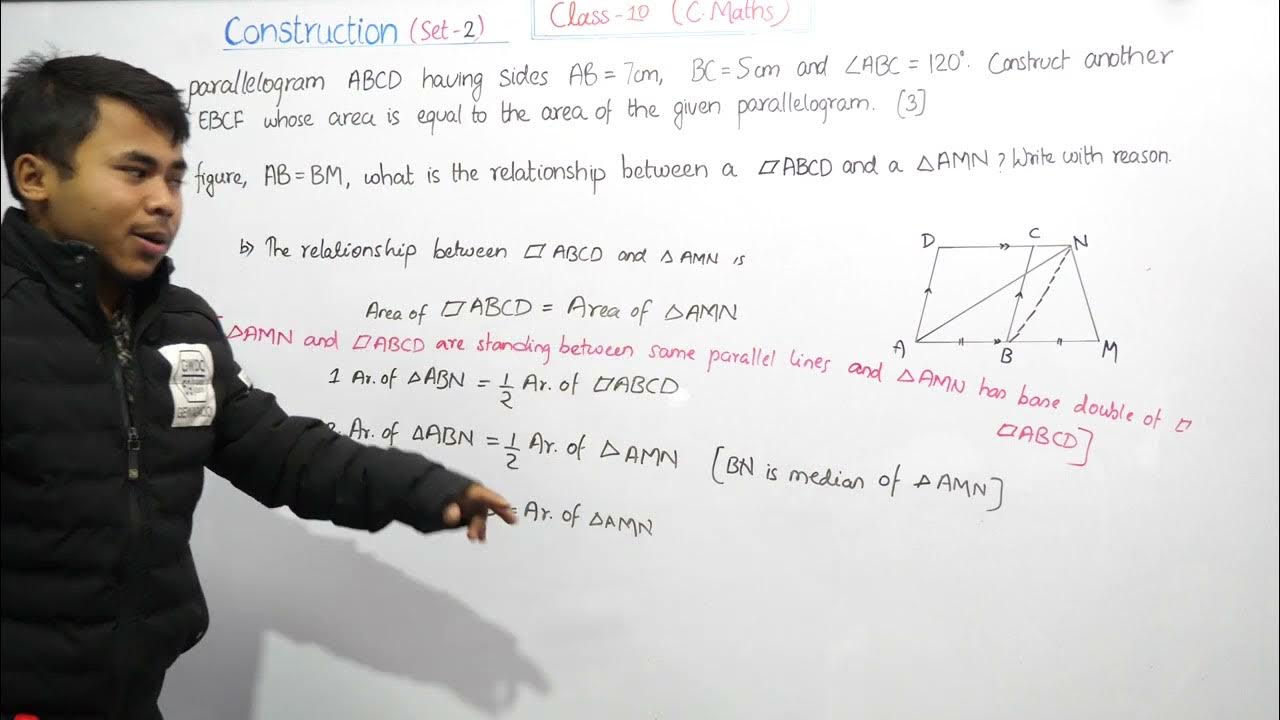 Construction (Set-2)
Class-10 (C.Maths)
parallelogram ABCD having sides AB = 7cm, BC = 5cm and ∠ABC = 120°. Construct another
EBCF whose area is equal to the area of the given parallelogram. [3]
figure, AB = BM, what is the relationship between a ▱ABCD and a △AMN? Write with reason.
b) The relationship between ▱ABCD and △AMN is
Area of ▱ABCD = Area of △AMN
△AMN and ▱ABCD are standing between same parallel lines and △AMN has base double of ▱
▱ABCD]
1 Ar. of △ABN = 1/2 Ar. of ▱ABCD
Ar. of △ABN = 1/2 Ar. of △AMN [BN is median of △AMN]
= Ar. of △AMN
D C N
A B M